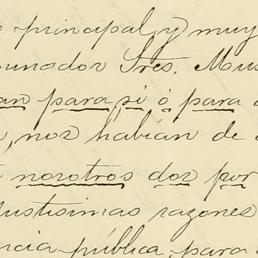 principal, y muy
Sres. Mus
an para sí ó para
, nos habían de
nosotros dos por
ustisimas razones
ncia pública, para